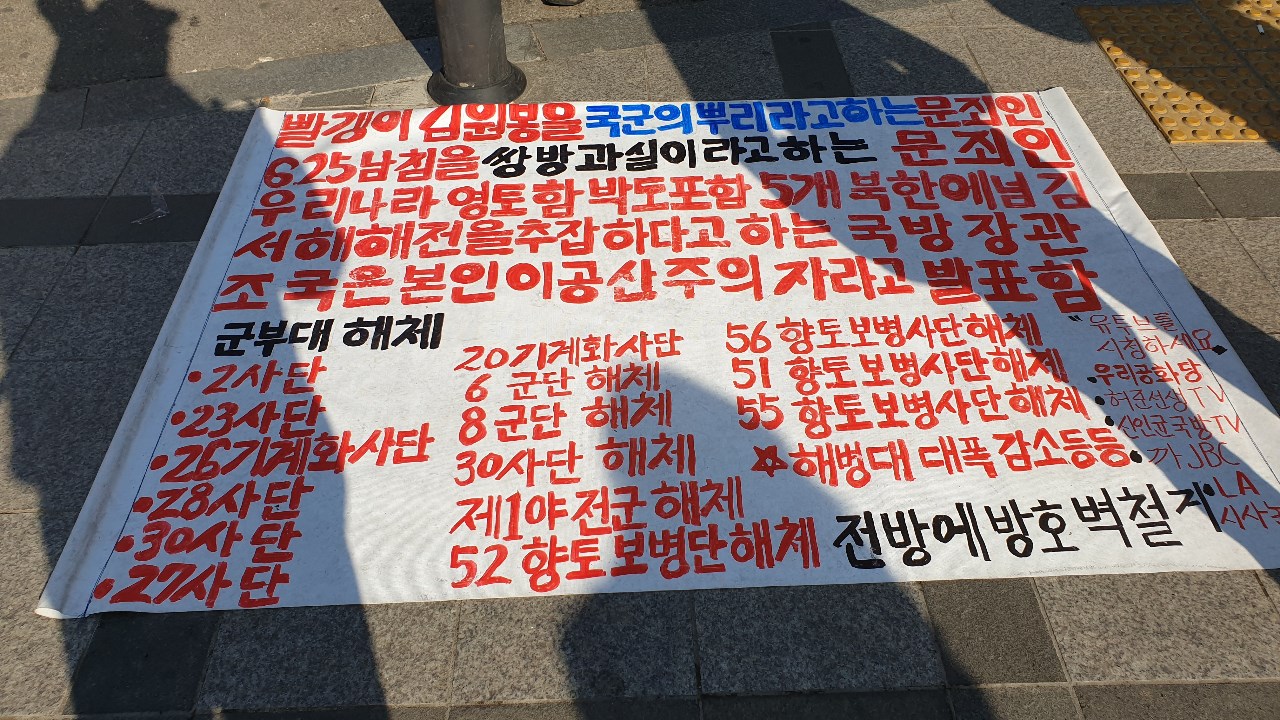 빨갱이 김원봉을 국군의 뿌리라고하는 문죄인
6.25남침을 쌍방과실이라고하는 문죄인
우리나라 영토 함박도포함 5개 북한에넘김
서해해전을 추잡하다고 하는 국방장관
조국은 본인이 공산주의자라고 발표함
군부대 해체
•2사단
•23사단
•26기계화사단
•28사단
•30사단
•27사단
20기계화사단
6군단 해체
8군단 해체
30사단 해체
제1야전군 해체
52 향토보병단해체
56 향토보병사단해체
51 향토보병사단해체
55 향토보병사단해체
☆해병대 대폭감소등등
전방에 방호벽철거
유투브를
시청하세요
•우리공화당
•허준선생TV
•신인균국방TV
•까JBC
•LA
시사